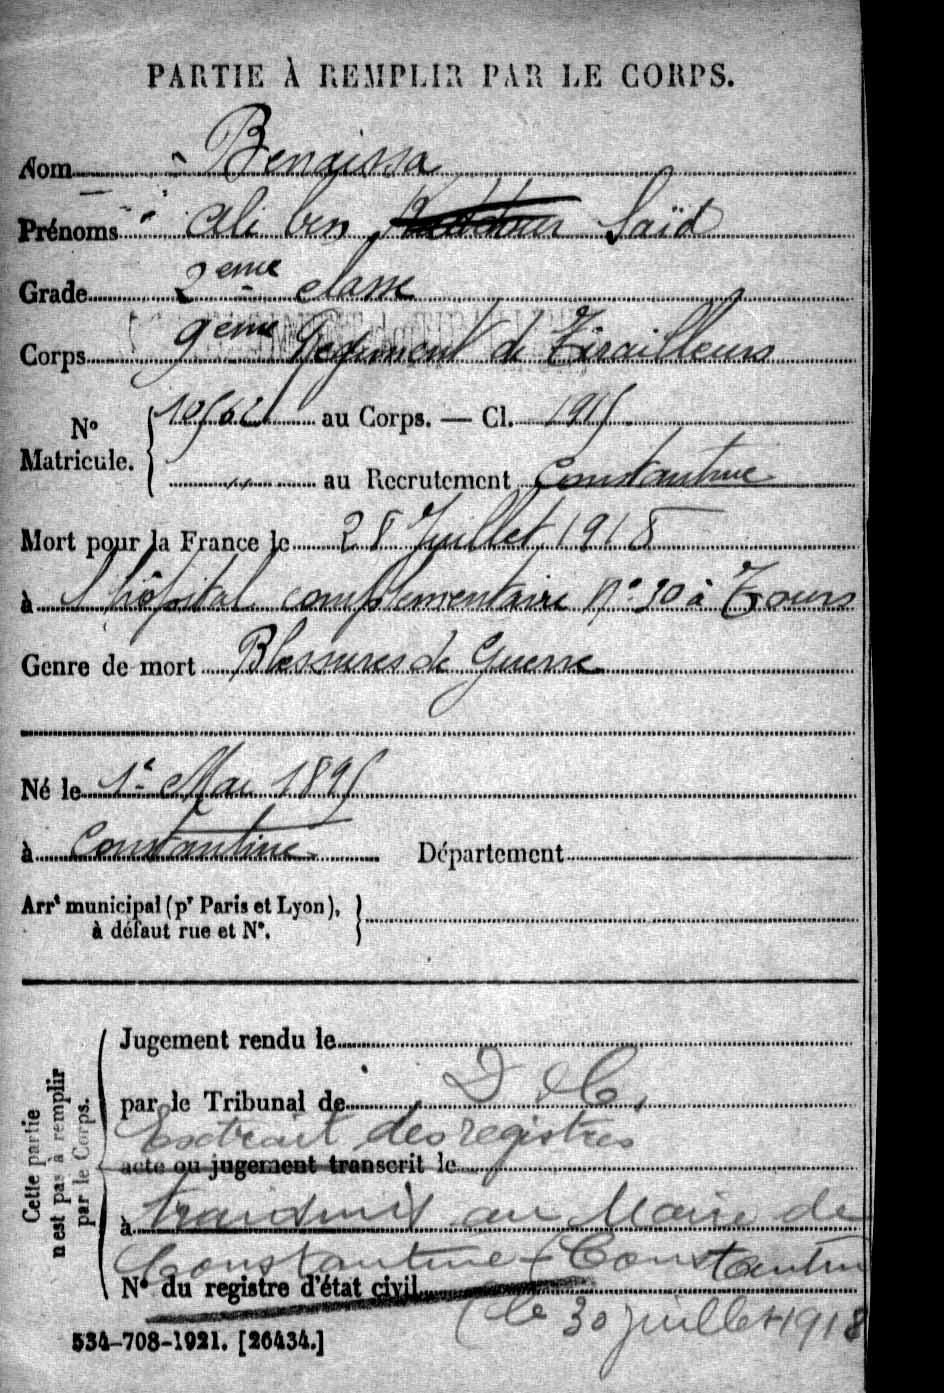 PARTIE À REMPLIR PAR LE CORPS.
Nom Benaissa
Prénoms Ali ben Saïd
Grade 2eme classe
Corps 9eme Regiment de Tirailleurs
N° Matricule. 10562 au Corps. — Cl. 1915
" au Recrutement Constantine
Mort pour la France le 28 Juillet 1918
à l'hôpital complémentaire N° 30 à Tours
Genre de mort Blessures de Guerre
Né le 1er Mai 1895
à Constantine Département
Arrt municipal (pr Paris et Lyon),
à défaut rue et N°.
Cette partie
n'est pas à remplir
par le Corps.
Jugement rendu le
par le Tribunal de D C.
Extrait des registres
acte ou jugement transcrit le
à transmis au Maire de
Constantine (Constantine
N° du registre d'état civil
(le 30 juillet 1918
534-708-1921. [26434.]